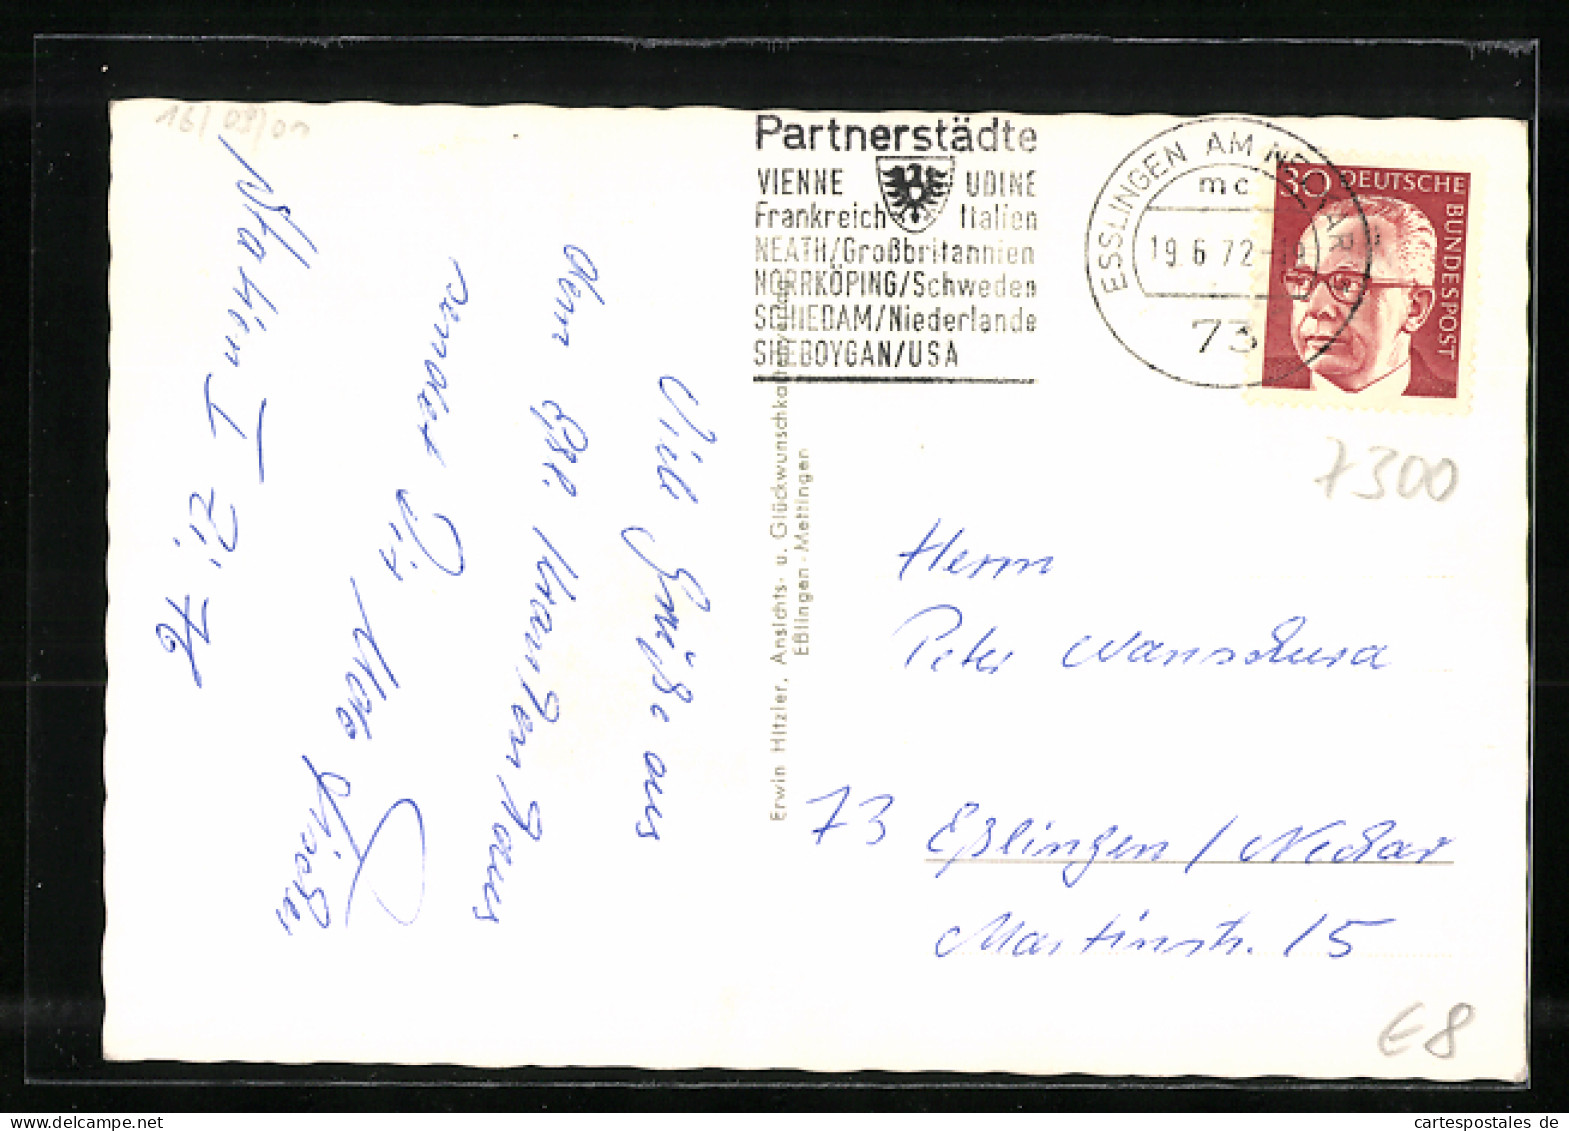 16/09/01
Partnerstädte
VIENNE UDINE
Frankreich Italien
NEATH/Großbritannien
NORRKÖPING/Schweden
SCHIEDAM/Niederlande
SHEBOYGAN/USA
ESSLINGEN AM NECKAR
mc
19.6.72
73
30 DEUTSCHE BUNDESPOST
7300
Viele Grüße aus
dem Eßl. Krankenhaus
sendet Dir
Station I Zi.
Erwin Hitzler, Ansichts- u. Glückwunschkarten
Eßlingen-Mettingen
Herrn
Peter
73 Eßlingen / Neckar
Martinstr. 15
€8
cartespostales de
www.delcampe.net